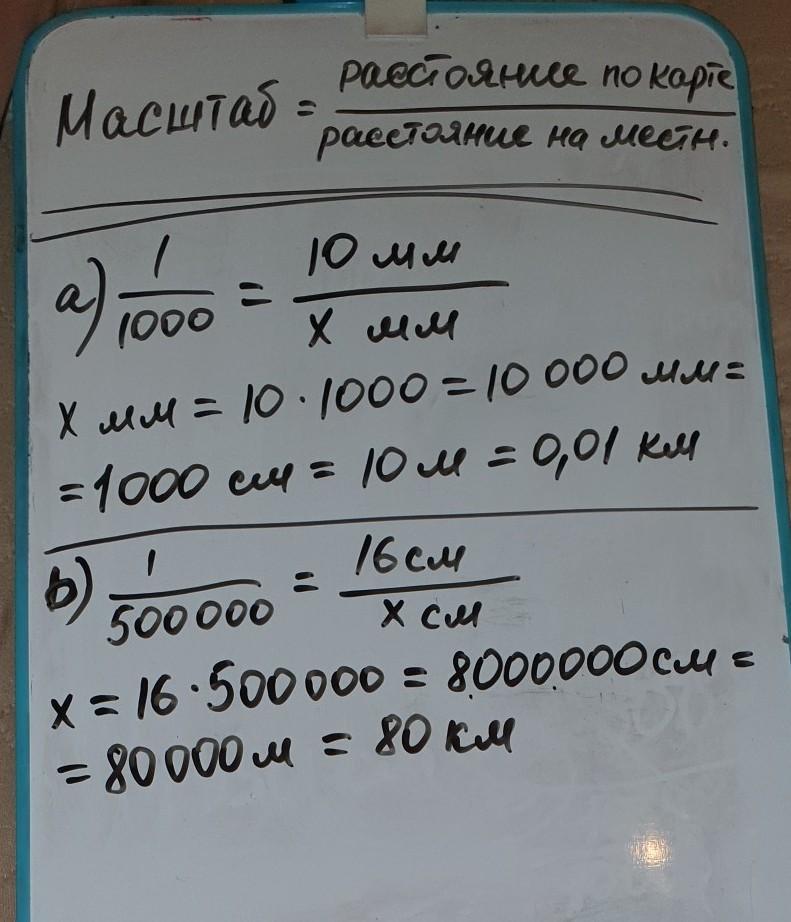 Масштаб = расстояние по карте / расстояние на местн.
a) 1/1000 = 10 мм / x мм
x мм = 10 · 1000 = 10 000 мм =
= 1000 см = 10 м = 0,01 км
b) 1/500000 = 16 см / x см
x = 16 · 500000 = 8000000 см =
= 80000 м = 80 км